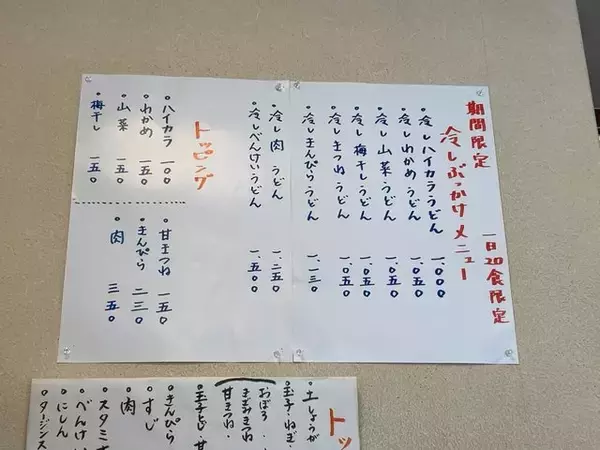 期間限定
一日20食限定
冷しぶっかけメニュー
・冷しハイカラうどん 一、〇〇〇
・冷しわかめうどん 一、〇五〇
・冷し山菜うどん 一、〇五〇
・冷し梅干しうどん 一、〇五〇
・冷しきつねうどん 一、〇五〇
・冷しきんぴらうどん 一、一三〇
・冷し肉うどん 一、二五〇
・冷しべんけいうどん 一、五〇〇
トッピング
・ハイカラ 一〇〇
・わかめ 一五〇
・山菜 一五〇
・梅干し 一五〇
・甘きつね 一五〇
・きんぴら 二三〇
・肉 三五〇
トッ
・土しょうが
・玉子・ねぎ・
おぼろ
きざみきつね
甘きつね・
・玉子とじ・甘
・きんぴら
・すじ
・肉
・スタミ
・べんけ
・にしん
・タージンス